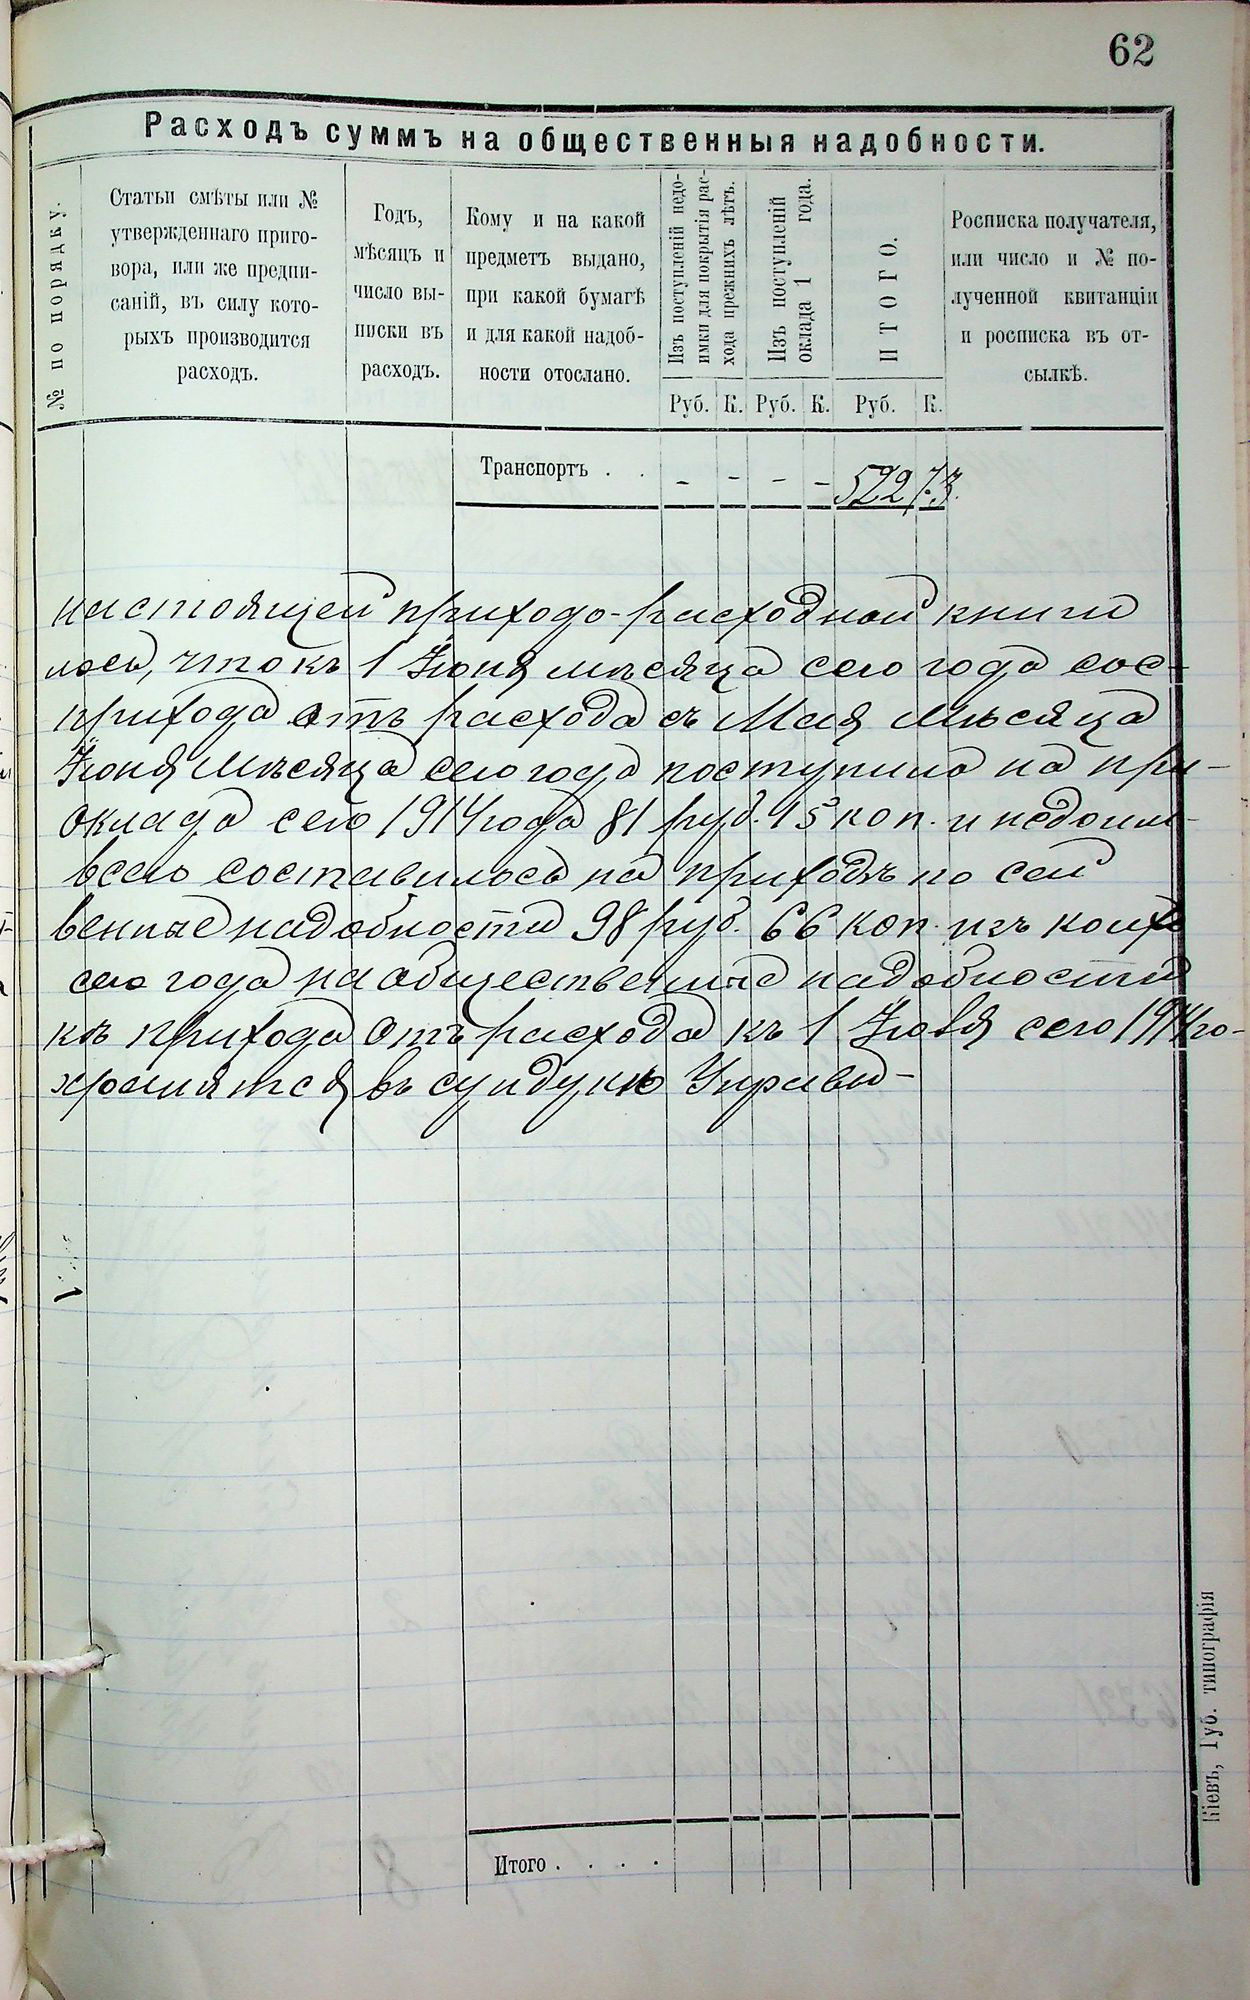 62
Расходъ суммъ на общественныя надобности.
№ по порядку.
Статьи смѣты или №
утвержденнаго приго-
вора, или же предпи-
саній, въ силу кото-
рыхъ производится
расходъ.
Годъ,
мѣсяцъ и
число вы-
писки въ
расходъ.
Кому и на какой
предметъ выдано,
при какой бумагѣ
и для какой надоб-
ности отослано.
Изъ поступленій недо-
имки для покрытія рас-
хода прежнихъ лѣтъ.
Изъ поступленій
оклада 1 года.
ИТОГО.
Росписка получателя,
или число и № по-
лученной квитанціи
и росписка въ от-
сылкѣ.
Руб. К. Руб. К. Руб. К.
Транспортъ . . - - - - 522 73.
настоящей приходо-расходной книги
лось, что къ 1 Іюня мѣсяца сего года сос-
прихода отъ расхода съ Мая мѣсяца
Іюня мѣсяца сего года поступило на при-
оклада сего 1914 года 81 руб. 15 коп. и недоим-
всего составилось на приходъ по сей
венные надобности 98 руб. 66 коп. изъ коихъ
сего года на общественные надобности
къ прихода отъ расхода къ 1 Іюля сего 1914 го-
хранятся въ сундукѣ Управы-
Итого . . . .
Кіевъ, Губ. типографія